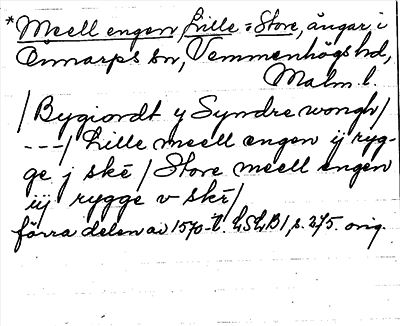 *Meell engen, Lille = Store, ängar i
Önnarps sn, Vemmenhögs hd,
Malm l.
/ Bygiordt y Syndre wongh/
---/ Lille meell engen ij ryg-
ge j skē / Store meell engen
iij rygge v skē/
förra delen av 1570-t. LSLB1, s. 275. orig.